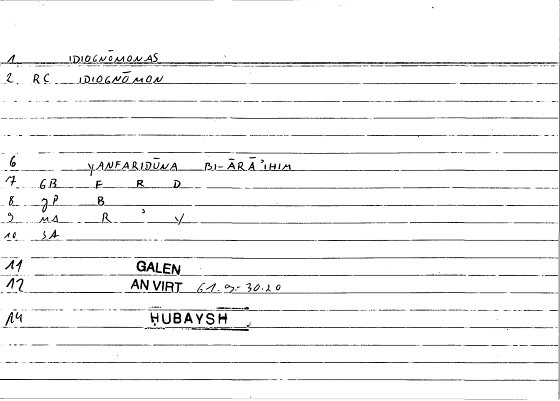 1. IDIOGNŌMONAS
2. RC IDIOGNŌMON
6 YANFARIDŪNA BI-ĀRĀʾIHIM
7 GB F R D
8 JP B
9 MA R ʾ Y
10 SA
11 GALEN
12 AN VIRT 61.9-30.20
14 ḤUBAYSH